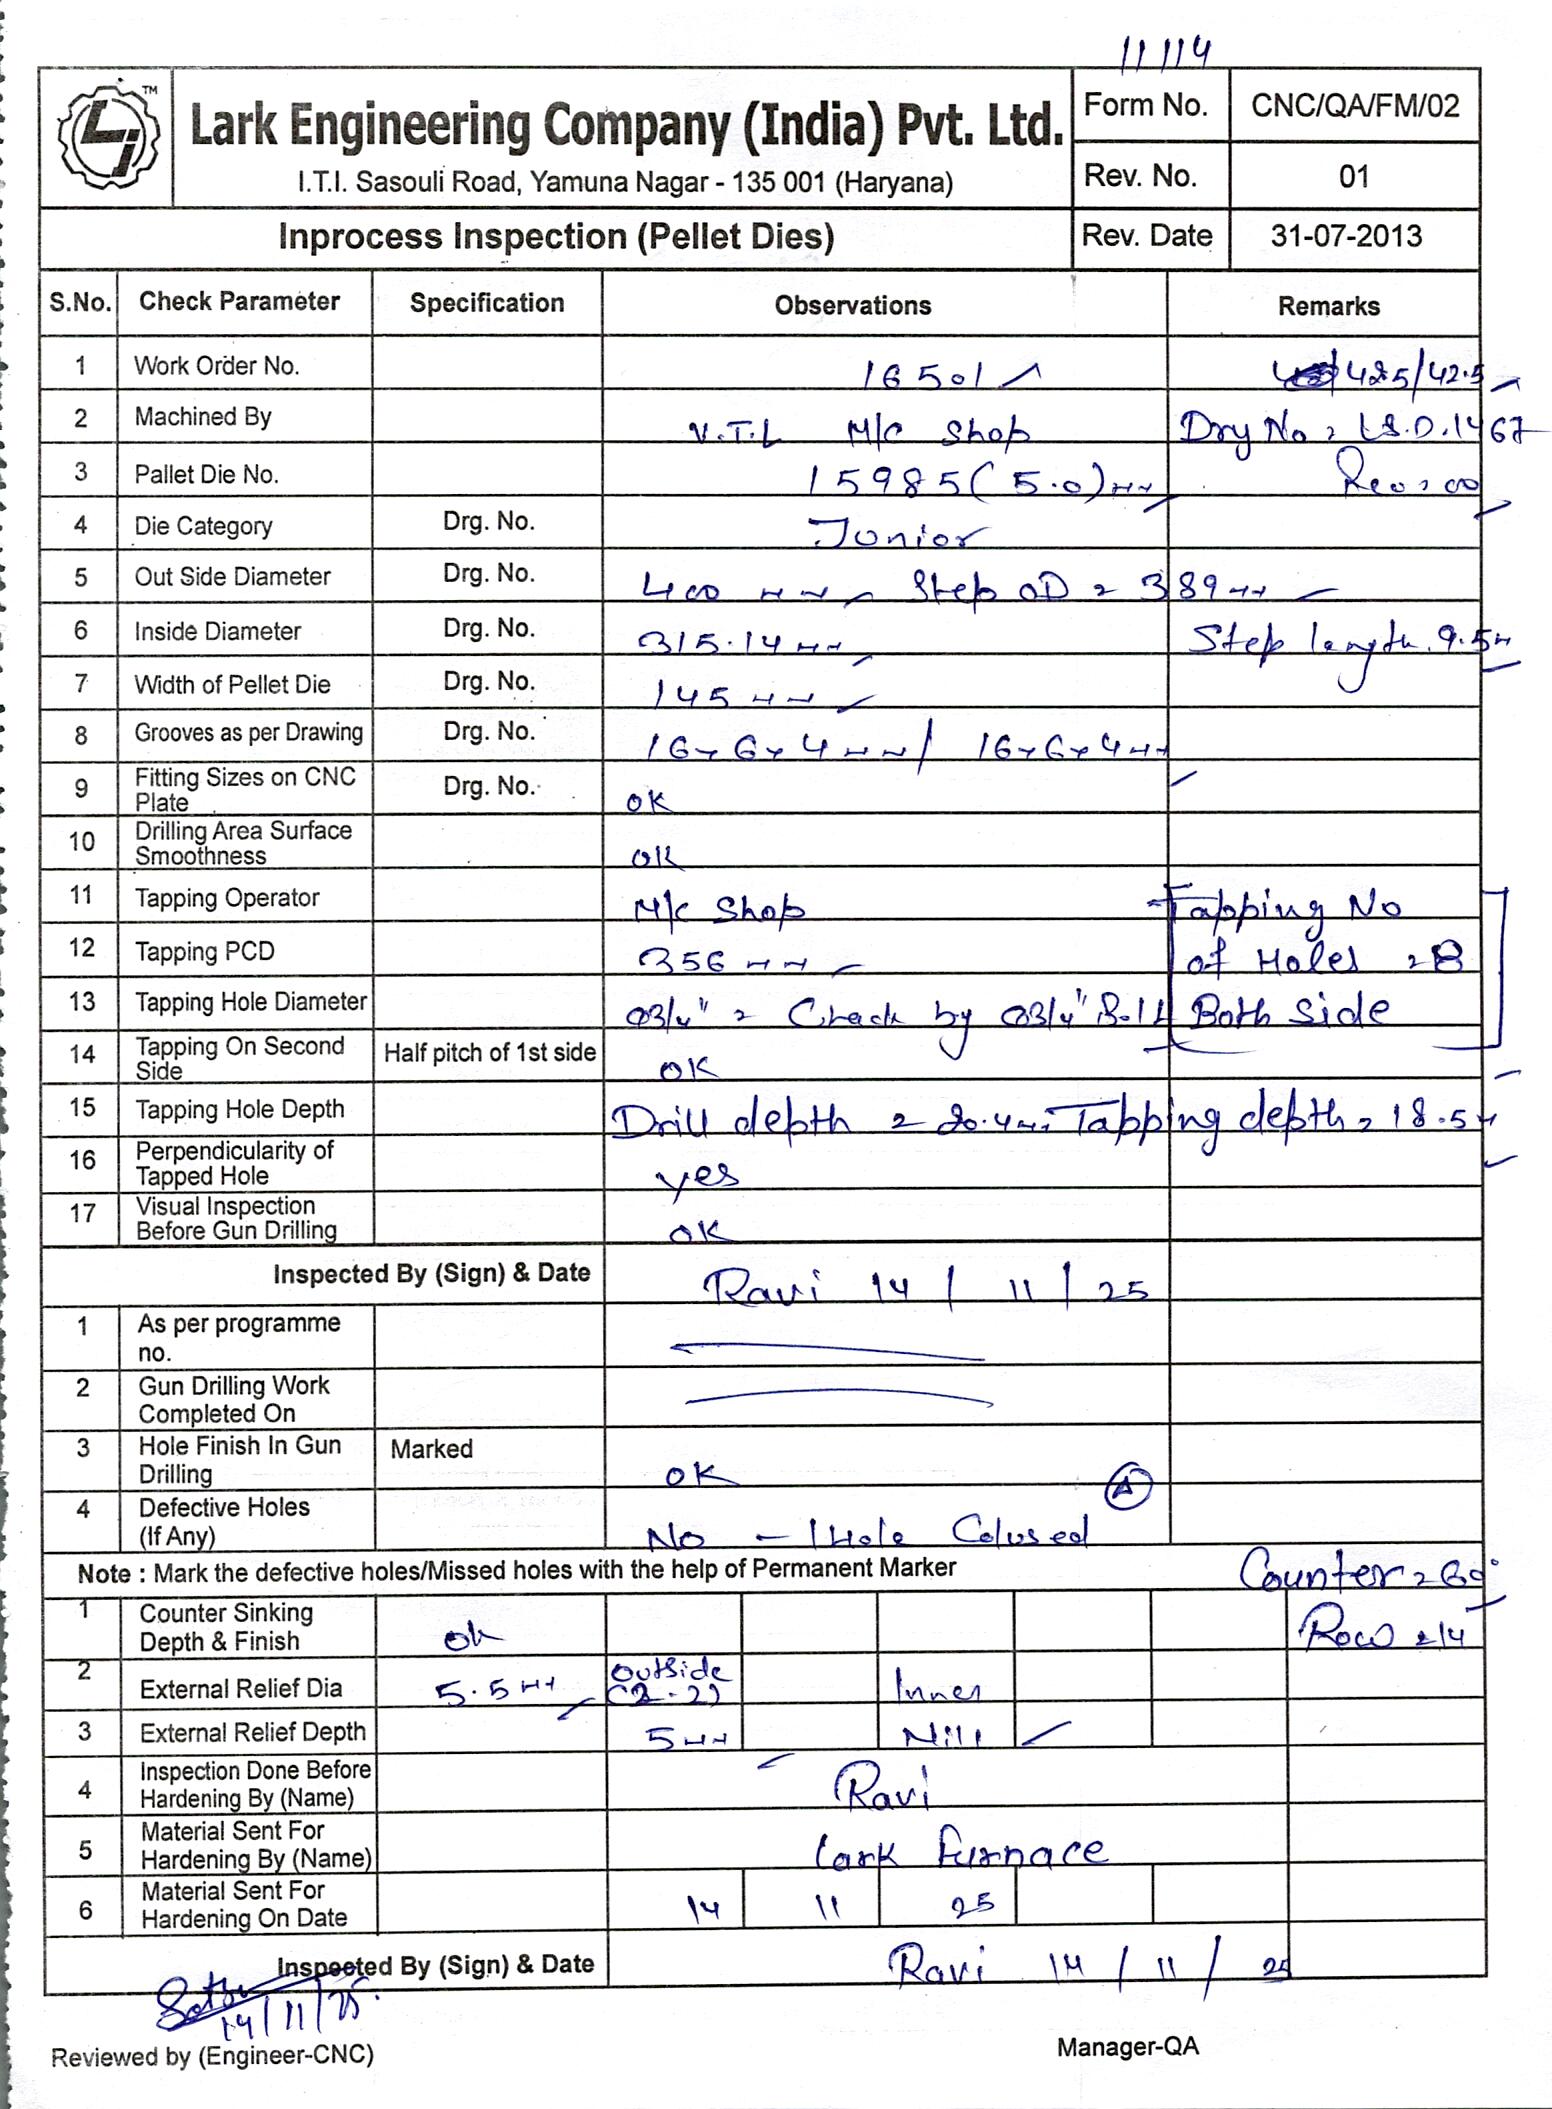 11114
TM
Lark Engineering Company (India) Pvt. Ltd.
I.T.I. Sasouli Road, Yamuna Nagar - 135 001 (Haryana)
Form No. CNC/QA/FM/02
Rev. No. 01
Inprocess Inspection (Pellet Dies) Rev. Date 31-07-2013
S.No. Check Parameter Specification Observations Remarks
1 Work Order No. 16501 425/42.5
2 Machined By V.T.L M/C Shop Dry No = L.S.D.1467
3 Pallet Die No. 15985(5.0)mm Rev = 00
4 Die Category Drg. No. Junior
5 Out Side Diameter Drg. No. 400 mm Step OD = 389mm
6 Inside Diameter Drg. No. 315.14mm Step length 9.5m
7 Width of Pellet Die Drg. No. 145mm
8 Grooves as per Drawing Drg. No. 16x6x4mm/ 16x6x4mm
9 Fitting Sizes on CNC Plate Drg. No. OK
10 Drilling Area Surface Smoothness OK
11 Tapping Operator M/C Shop Tapping No
12 Tapping PCD 356mm of Holes = 8
13 Tapping Hole Diameter Ø3/4" = Check by Ø3/4" Bolt Both Side
14 Tapping On Second Side Half pitch of 1st side OK
15 Tapping Hole Depth Drill depth = 20.4mm Tapping depth = 18.5m
16 Perpendicularity of Tapped Hole yes
17 Visual Inspection Before Gun Drilling OK
Inspected By (Sign) & Date Ravi 14 / 11 / 25
1 As per programme no.
2 Gun Drilling Work Completed On
3 Hole Finish In Gun Drilling Marked OK
4 Defective Holes (If Any) No - 1 Hole Colused A
Note : Mark the defective holes/Missed holes with the help of Permanent Marker Counter = 60°
1 Counter Sinking Depth & Finish ok Row = 14
2 External Relief Dia 5.5mm Outside (2-2) Inner
3 External Relief Depth 5mm Nill
4 Inspection Done Before Hardening By (Name) Ravi
5 Material Sent For Hardening By (Name) Lark Furnace
6 Material Sent For Hardening On Date 14 11 25
Inspected By (Sign) & Date Ravi 14 / 11 / 25
14/11/25
Reviewed by (Engineer-CNC) Manager-QA